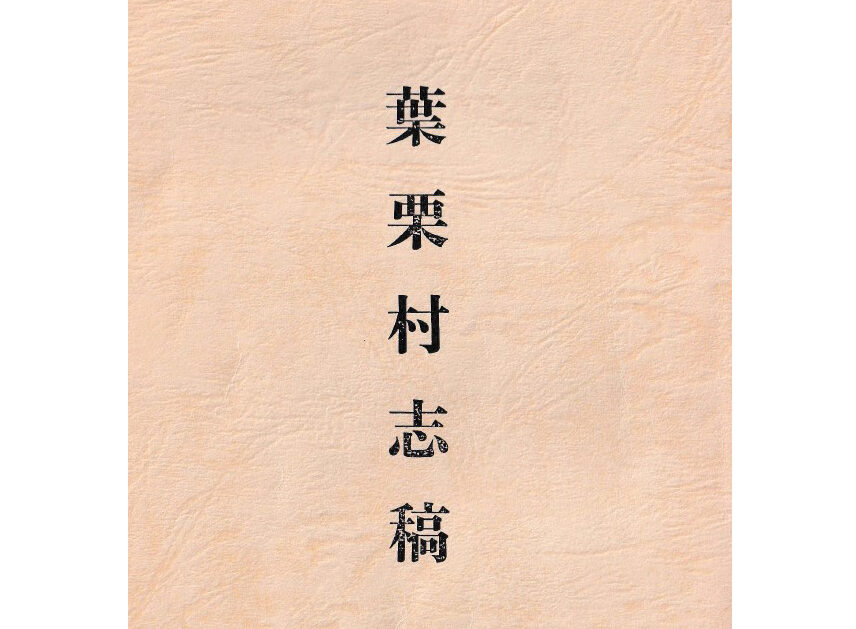 葉栗村志稿